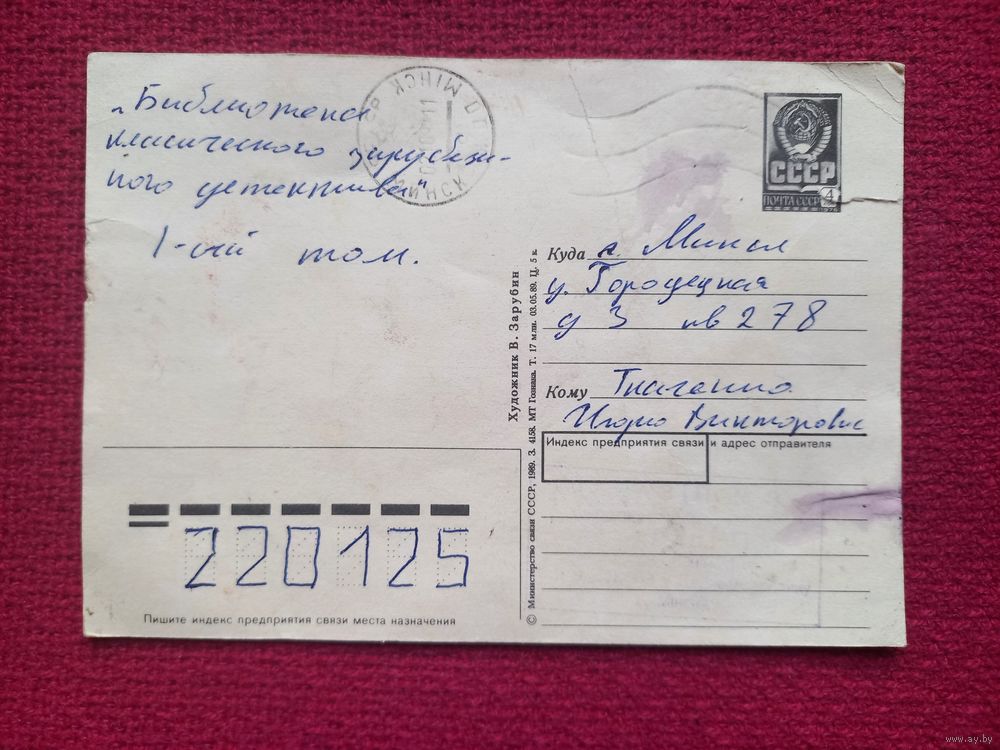 „Библиотека
класического зарубеж-
ного детектива"
1-ый том.
МІНСК
МИНСК
СССР
ПОЧТА СССР
4
1976
Куда г. Минск
у. Городецкая
д 3 кв 278
Кому Ткаченко
Игорю Викторович
Индекс предприятия связи и адрес отправителя
Художник В. Зарубин
© Министерство связи СССР, 1989. З. 4158. МТ Гознака. Т. 17 млн. 03.05.89. Ц. 5 к.
220125
Пишите индекс предприятия связи места назначения
www.ay.by